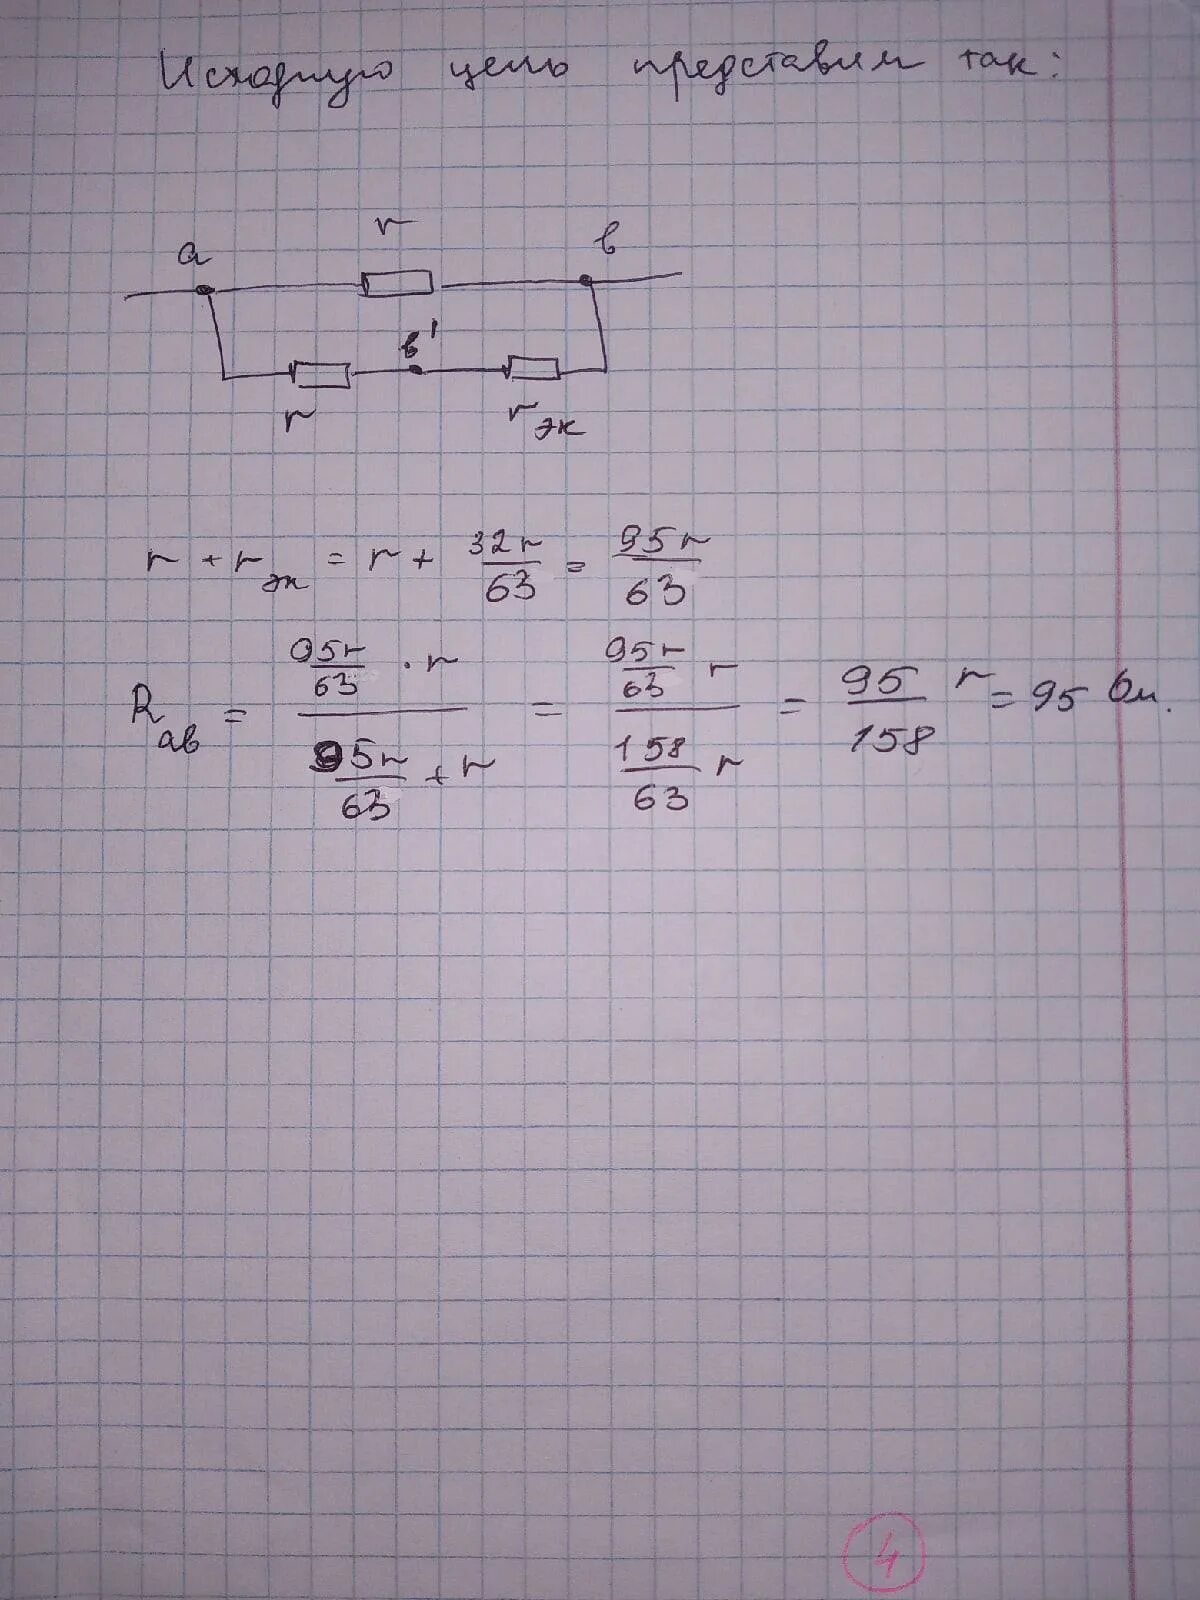 Исходную цепь представим так:
r
a
в
в'
r
rэк
r + rэк = r + 32r/63 = 95r/63
Rав = (95r/63 · r)/(95r/63 + r) = (95r/63 r)/(158/63 r) = 95/158 r = 95 Ом.
4